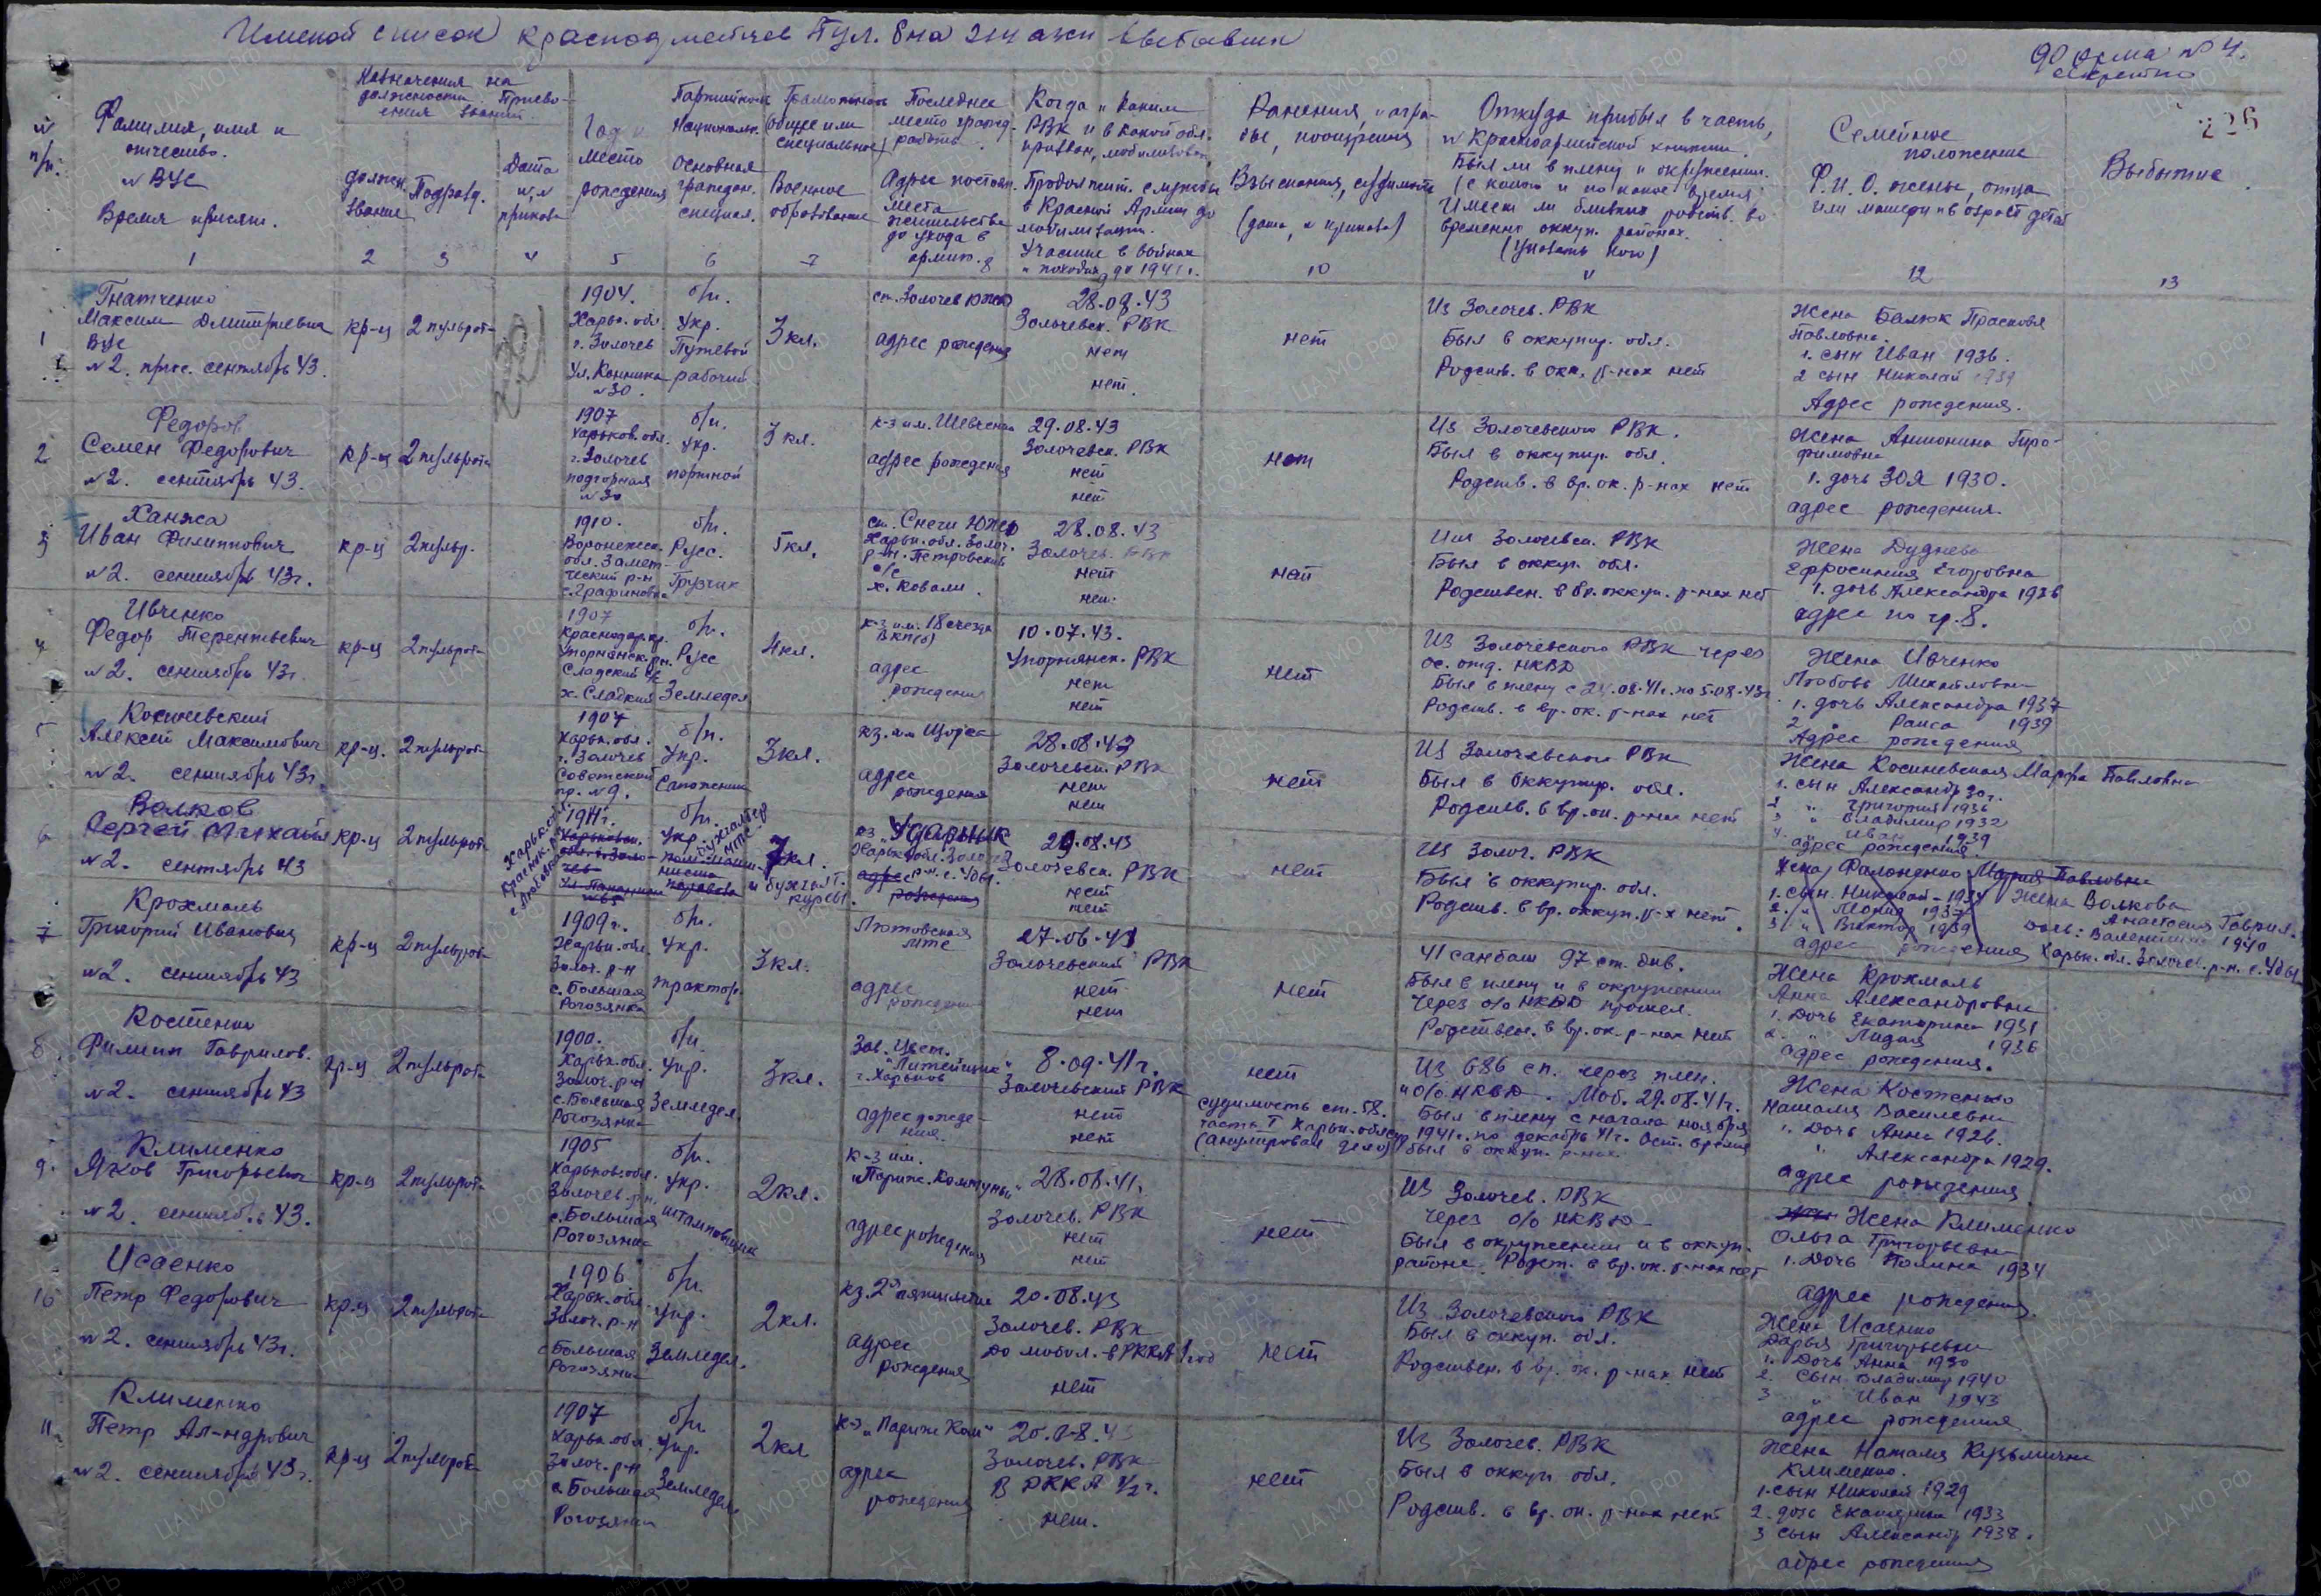 Именной список красноармейцев Пул. 8на
Форма №4.
Секретно
226
№ п/п.
Фамилия, имя и отчество.
№ ВУС
Время присяги.
Назначения на должности Присвоения званий
должн. звание
Подразд.
Дата и № приказа
Год и место рождения
Партийность Национальн.
Основная граждан. специал.
Грамотность (общее или специальное)
Военное образование
Последнее место гражд. работы.
Адрес постоян. места жительства до ухода в армию.
Когда и каким РВК и в какой обл. призван, мобилизован
Продолжит. службы в Красной Армии до мобилизации.
Участие в войнах и походах до 1941 г.
Ранения, награды, поощрения
Взыскания, судимость
(дата, № приказа)
Откуда прибыл в часть,
№ Красноармейской книжки.
Был ли в плену и окружении.
(с какого и по какое время)
Имеет ли близких родств. во
временно оккуп. районах.
(указать кого)
Семейное положение
Ф.И.О. жены, отца
или матери и возраст детей
Выбытие
1 2 3 4 5 6 7 8 9 10 11 12 13
1
Гнатченко
Максим Дмитриевич
ВУС
№2. прис. сентябрь 43.
кр-ц
2 пульрота
1904.
Харьк. обл.
г. Золочев
№30.
б/п.
Укр.
Путевой
рабочий
3 кл.
ст. Золочев Южн
адрес рождения
28.08.43
Золочевск. РВК
нет
нет.
нет
Из Золочев. РВК
Был в оккупир. обл.
Родств. в окк. р-нах нет
Жена Балюк Прасковья
Павловна.
1. сын Иван 1936.
2 сын Николай 1939
Адрес рождения.
2
Федоров
Семен Федорович
№2. сентябрь 43.
кр-ц
2 пульрота
1907
Харьков. обл.
г. Золочев
подгорная
№30
б/п.
Укр.
портной
3 кл.
к-з им. Шевченко
адрес рождения
29.08.43
Золочевск. РВК
нет
нет
нет
Из Золочевского РВК.
Был в оккупир. обл.
Родств. в вр. ок. р-нах нет
Жена Антонина
1. дочь Зоя 1930.
адрес рождения.
3
Ханжа
Иван Филиппович
№2. сентябрь 43г.
кр-ц
2 пульр.
1910.
Воронежск.
обл.
ческий р-н
с. Графиновка
б/п.
Русс.
Грузчик
5 кл.
ст. Снеги Южн
Харьк. обл. Золоч.
р-н. Петровский
с/с
х. Ковали.
28.08.43
Золочев. РВК
нет
нет.
нет
Из Золочевск. РВК
Был в оккуп. обл.
Родствен. в вр. оккуп. р-нах нет
Жена Дуднева
Ефросиния Егоровна
1. дочь Александра 1936
адрес по гр. 8.
4
Ивченко
Федор Терентьевич
№2. сентябрь 43г.
кр-ц
2 пульрота
1907
Краснодар. кр.
Упорнянск. рн.
Сладский с/с
х. Сладкий
б/п.
Русс
Земледел
4 кл.
к-з им. 18 съезда
ВКП(б)
адрес
рождения
10.07.43.
Упорнянск. РВК
нет
нет
нет
Из Золочевского РВК через
ос. отд. НКВД
Родств. в вр. ок. р-нах нет
Жена Ивченко
Любовь Михайловна
1. дочь Александра 1937
2. " Раиса 1939
Адрес рождения
5
Косиневский
Алексей Максимович
№2. сентябрь 43г.
кр-ц.
2 пульрота
1907
Харьк. обл.
г. Золочев
Советский
пр. №9.
б/п.
Укр.
Сапожник
3 кл.
кз. им Щорса
адрес
рождения
28.08.43
Золочевск. РВК
нет
нет
нет
Из Золочевского РВК
Был в оккупир. обл.
Родств. в вр. ок. р-нах нет
Жена Косиневская Марфа Павловна
1. сын Александр 30г.
2 " Григорий 1936
3 " Владимир 1932
4. " Иван 1939
адрес рождения.
6
Волков
Сергей Михайл
№2. сентябрь 43
кр-ц
2 пульрота
1911г.
б/п.
Укр.
бухгалтер
МТС
7 кл.
и бухгалт. курсы.
кз. Ударник
Харьк. обл. Золоч
р-н. с. Уды.
адрес рождения
29.08.43
Золочевск. РВК
нет
нет
нет
Из Золоч. РВК
Был в оккупир. обл.
Родств. в вр. оккуп. р-х нет.
Жена Филоненко Мария Павловна
1. сын. Николай - 1934
2. " Леонид 1937
3 " Виктор 1939
адрес рождения
Жена Волкова
Анастасия Гаврил.
дочь: Валентина 1940
Харьк. обл. Золочев. р-н. с. Уды
7
Крохмаль
Григорий Иванович
№2. сентябрь 43
кр-ц
2 пульрота
1909г.
Харьк. обл.
Золоч. р-н
с. Большая
Рогозянка
б/п.
Укр.
трактор.
3 кл.
Лютовская
мтс
адрес
рождения
27.06.41
Золочевский РВК
нет
нет
нет
41 санбат 97 ст. див.
Был в плену и в окружении
Через о/о НКВД прошел.
Родствен. в вр. ок. р-нах нет
Жена Крохмаль
Анна Александровна
1. Дочь Екатерина 1931
2. " Лидия 1936
адрес рождения.
8.
Костенко
Филипп Гаврилов.
№2. сентябрь 43
кр-ц
2 пульрота
1900.
Харьк. обл.
Золоч. р-н
с. Большая
Рогозянка
б/п.
Укр.
Земледел.
3 кл.
Зав. Цвет.
"Литейщик"
г. Харьков
адрес рождения.
8.09.41г.
Золочевский РВК
нет
нет
нет
судимость ст. 58.
часть I Харьк. облсуд
(анулирован дело)
Из 686 сп. через плен.
и о/о НКВД. Моб. 29.08.41г.
Был в плену с начала ноября
1941г. по декабрь 41г. Ост. время
был в оккуп. р-нах.
Жена Костенко
Наталия Васильевна
1. Дочь Анна 1926.
" Александра 1929.
адрес рождения.
9.
Клименко
Яков Григорьевич
№2. сентябрь 43.
кр-ц
2 пульрота
1905
Харьков. обл.
Золочев. рн.
с. Большая
Рогозянка
б/п.
Укр.
штамповщик
2 кл.
к-з им.
"Париж. Коммуны"
адрес рождения
28.08.41г.
Золочев. РВК
нет
нет
нет
Из Золочев. РВК
через о/о НКВД
Был в окружении и в оккуп.
районе. Родст. в вр. ок. р-нах нет
Жена Клименко
Ольга Григорьевна
1. Дочь Полина 1934
адрес рождения.
10
Исаенко
Петр Федорович
№2. сентябрь 43г.
кр-ц
2 пульрота
1906
Харьк. обл.
Золоч. р-н
с Большая
Рогозянка
б/п.
Укр.
Земледел.
2 кл.
кз. 2я пятилетка
адрес
рождения
20.08.43
Золочев. РВК
До мобил. в РККА 1 год
нет
нет
Из Золочевского РВК
Был в оккуп. обл.
Родствен. в вр. ок. р-нах нет
Жена Исаенко
Дарья Григорьевна
1. Дочь Анна 1930
2. Сын Владимир 1940
3 " Иван 1943
адрес рождения
11
Клименко
Петр Ал-ндрович
№2. сентября 43г.
кр-ц
2 пульрота
1907
Харьк. обл.
Золоч. р-н
с. Большая
Рогозянка
б/п.
Укр.
Земледел.
2 кл
к-з "Париж Ком"
адрес
рождения
20.08.43
Золочев. РВК
В РККА 1/2 г.
нет.
нет
Из Золочев. РВК
Был в оккуп обл.
Родств. в вр. ок. р-нах нет
Жена Наталия Кузьминична
Клименко.
1. сын Николай 1929
2. дочь Екатерина 1933
3 сын Александр 1938.
адрес рождения